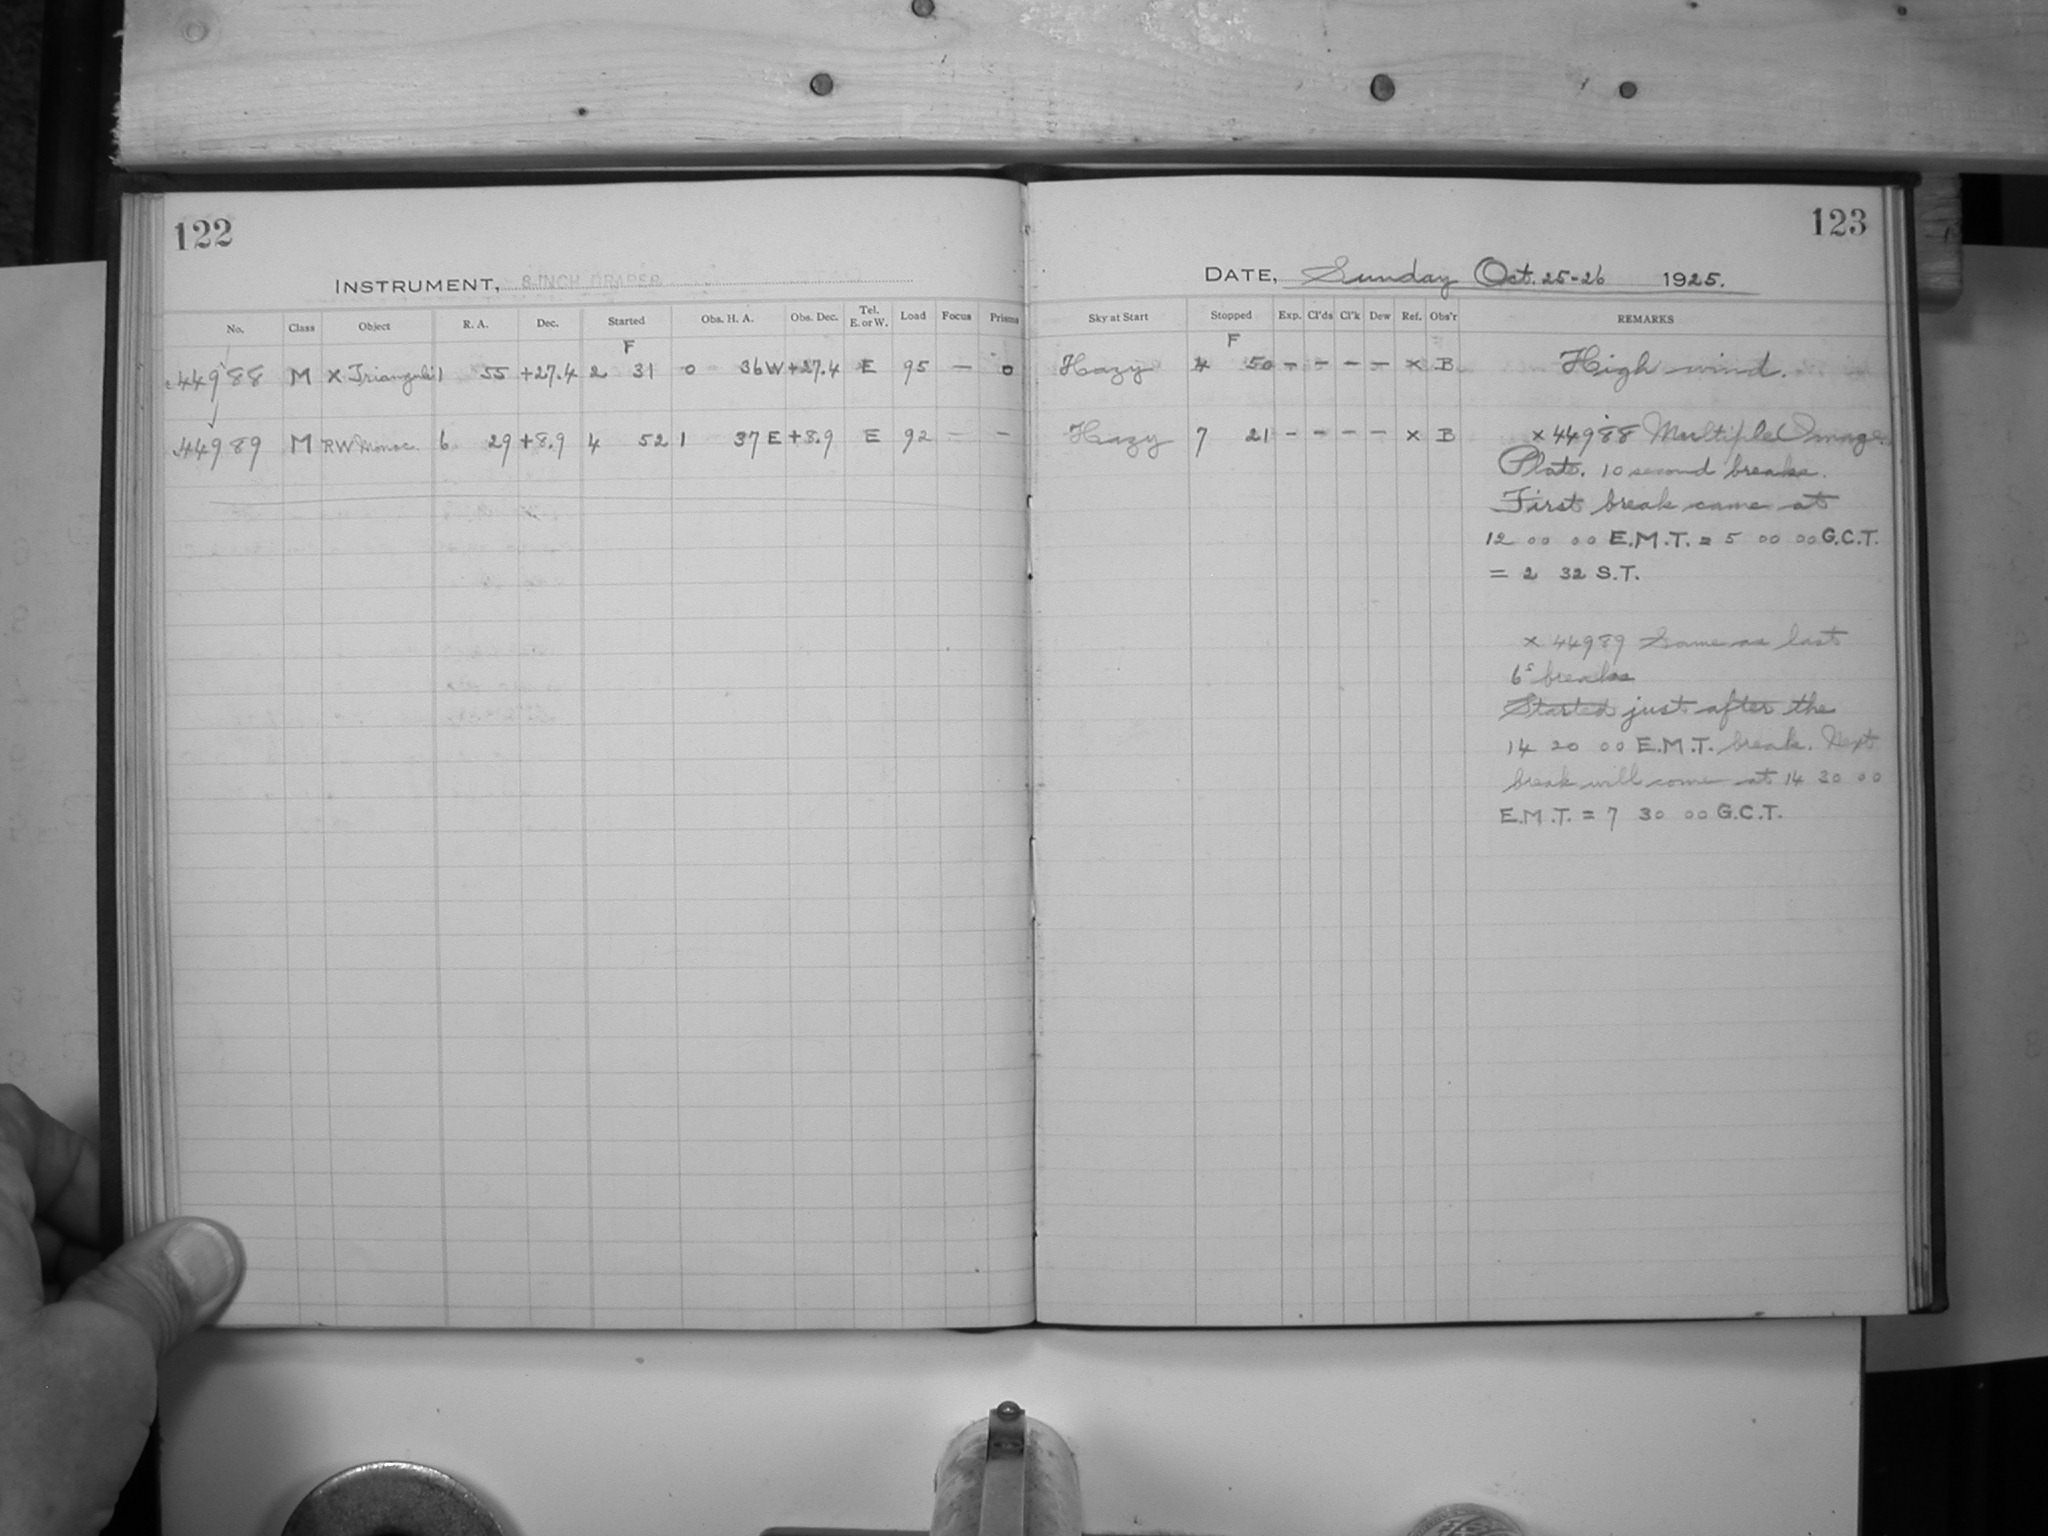 122
INSTRUMENT, 8 INCH DRAPER
No. Class Object R. A. Dec. Started Obs. H. A. Obs. Dec. Tel. E. or W. Load Focus Prisms
F
44988 M X Trianguli 1 55 +27.4 2 31 0 36 W +27.4 E 95 — 0
44989 M RW Monoc. 6 29 +8.9 4 52 1 37 E +8.9 E 92 — —
123
DATE, Sunday Oct. 25-26 1925.
Sky at Start Stopped Exp. Cl'ds Cl'k Dew Ref. Obs'r REMARKS
F
Hazy 4 50 - - - - x B High wind.
Hazy 7 21 - - - - x B x 44988 Multiple Image
Plate. 10 second breaks.
First break came at
12 00 00 E.M.T. = 5 00 00 G.C.T.
= 2 32 S.T.
x 44989 Same as last
6s breaks
Started just after the
14 20 00 E.M.T. break. Next
break will come at 14 30 00
E.M.T. = 7 30 00 G.C.T.